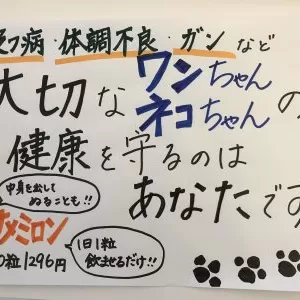 病・体調不良・ガンなど
大切なワンちゃん
ネコちゃんの
健康を守るのは
あなたです
中身を出して
ぬることも!!
メミロン
粒1296円
1日1粒
飲ませるだけ!!